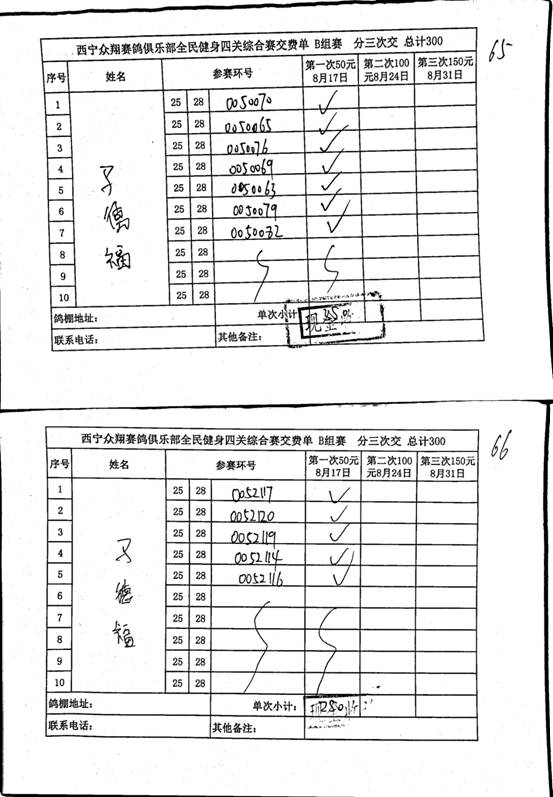 65
西宁众翔赛鸽俱乐部全民健身四关综合赛交费单 B组赛 分三次交 总计300
序号 姓名 参赛环号 第一次50元8月17日 第二次100元8月24日 第三次150元8月31日
1 25 28 0050070 ✓
2 25 28 0050065 ✓
3 25 28 0050076 ✓
4 25 28 0050069 ✓
5 25 28 0050063 ✓
6 25 28 0050079 ✓
7 25 28 0050032 ✓
8 25 28
9 25 28
10 25 28
德福
鸽棚地址： 单次小计 350
联系电话： 其他备注： 现金
66
西宁众翔赛鸽俱乐部全民健身四关综合赛交费单 B组赛 分三次交 总计300
序号 姓名 参赛环号 第一次50元8月17日 第二次100元8月24日 第三次150元8月31日
1 25 28 0052117 ✓
2 25 28 0052120 ✓
3 25 28 0052119 ✓
4 25 28 0052114 ✓
5 25 28 0052116 ✓
6 25 28
7 25 28
8 25 28
9 25 28
10 25 28
德福
鸽棚地址： 单次小计： 250
联系电话： 其他备注：